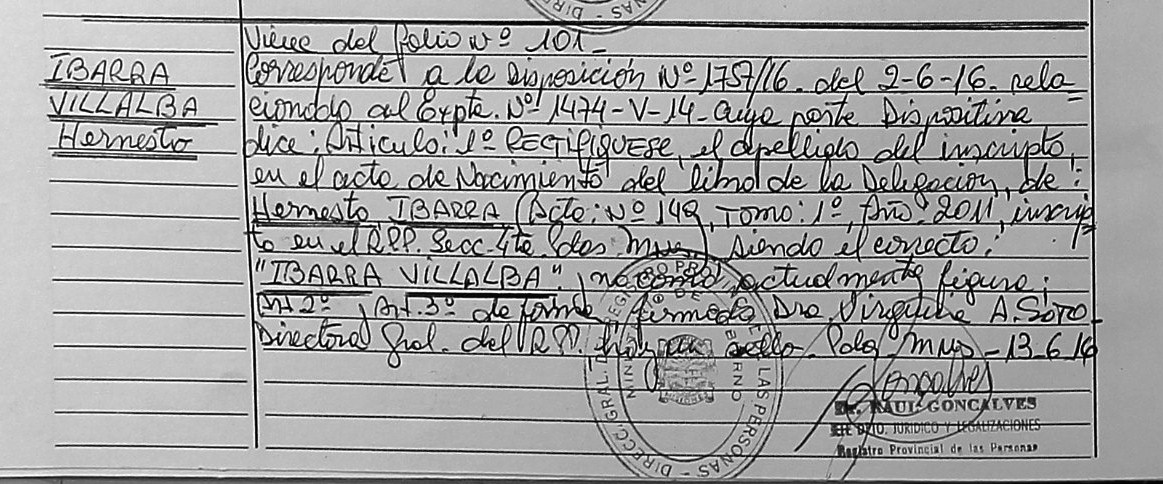 Viene del folio Nº 101_
IBARRA
VILLALBA
Hernesto
Corresponde a la Disposición Nº 1757/16. del 2-6-16. rela=
cionado al Expte. Nº 1474-V-14- cuya parte Dispositiva
dice: Articulo: 1º RECTIFIQUESE, el apellido del inscripto,
en el acta de Nacimiento del libro de la Delegacion, de:
Hernesto IBARRA (Acta: Nº 149, Tomo: 1º, Año 2011, inscrip
to en el R.P.P. Secc. 4ta. Pdas. Mnes) siendo el correcto:
"IBARRA VILLALBA". no como actualmente figura:
Art 2º, Art. 3º de forma, firmado Dra. Virginia A. SOTO_
Directora Gral. del R.P.P. hay un sello. Pdas Mnes - 13-6-16
Goncalves
Dr. RAUL GONCALVES
JEFE DPTO. JURIDICO Y LEGALIZACIONES
Registro Provincial de las Personas
DIRECC. GRAL. DEL REGISTRO PROV. DE LAS PERSONAS -
MINIST. DE GOBIERNO